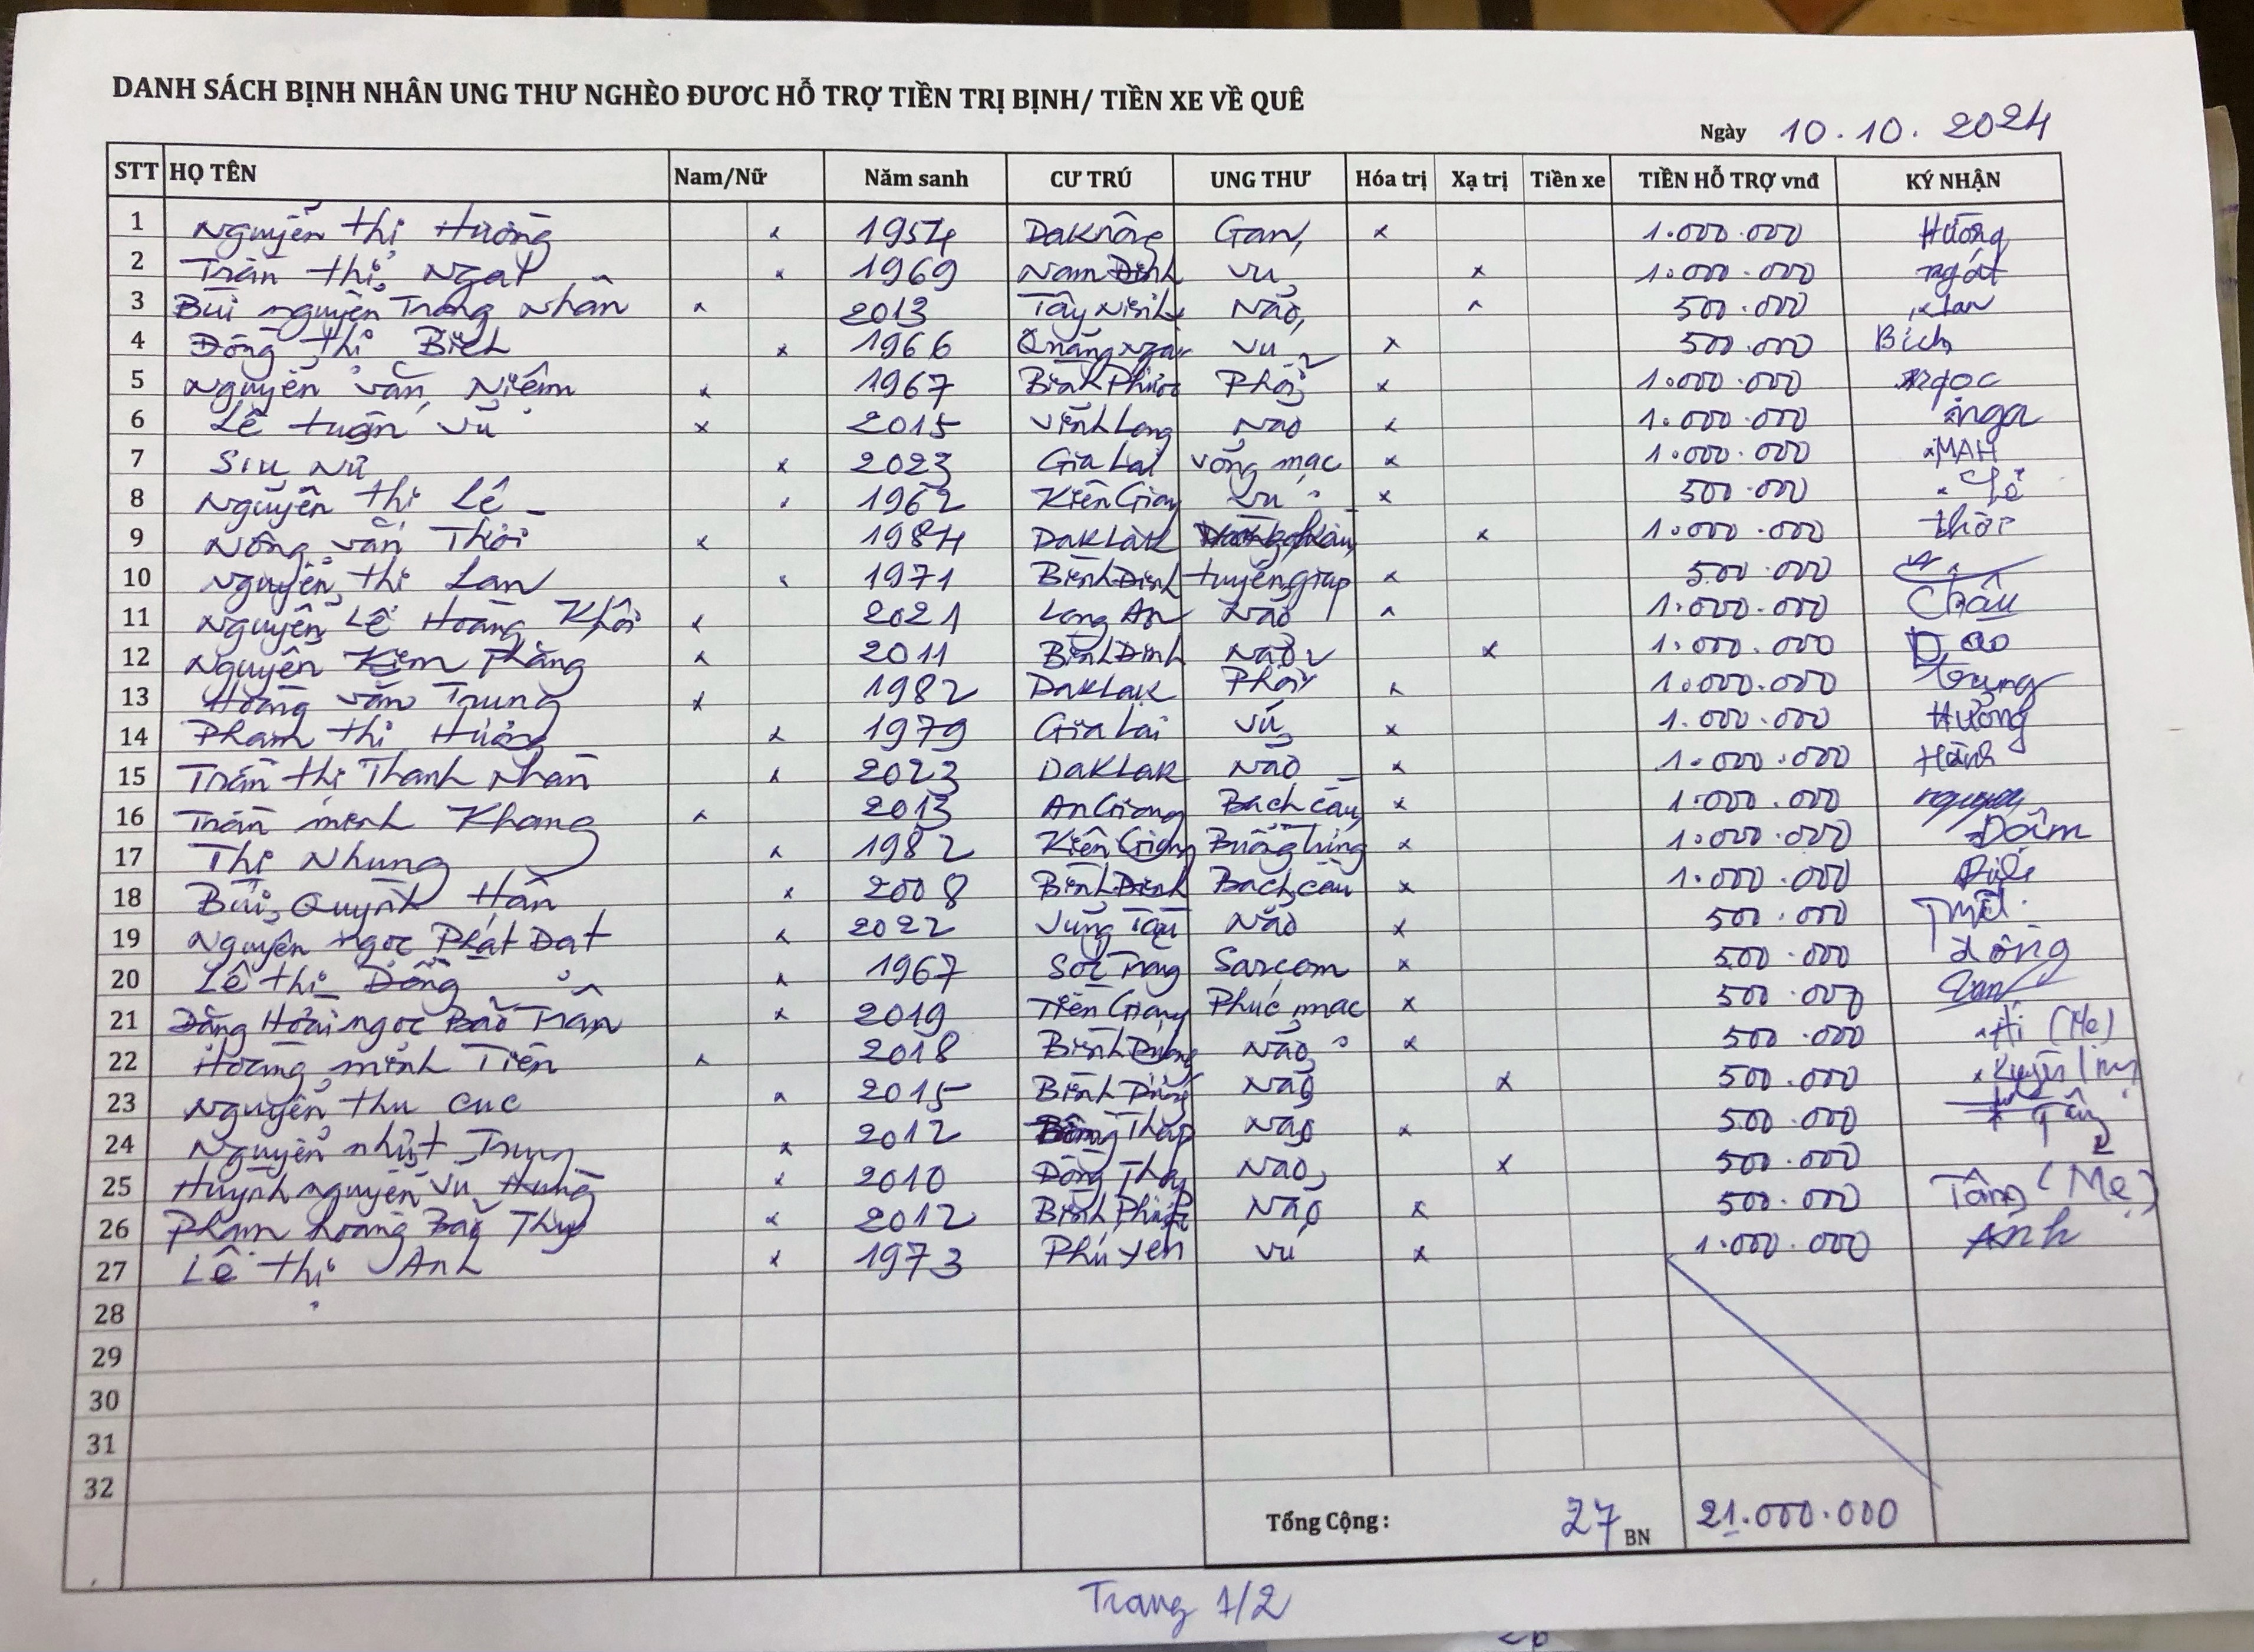 DANH SÁCH BỊNH NHÂN UNG THƯ NGHÈO ĐƯƠC HỖ TRỢ TIỀN TRỊ BỊNH/ TIỀN XE VỀ QUÊ
Ngày 10.10.2024
STT HỌ TÊN Nam/Nữ Năm sanh CƯ TRÚ UNG THƯ Hóa trị Xạ trị Tiền xe TIỀN HỖ TRỢ vnđ KÝ NHẬN
1 Nguyễn thị Hường x 1954 DakNông Gan x 1.000.000 Hường
2 Trần thị Ngat x 1969 Nam Định Vú x 1.000.000 ngát
3 Bùi nguyễn Trọng Nhân x 2013 Tây Ninh Não x 500.000
4 Đồng thị Bích x 1966 Quảng Ngãi Vú x 500.000 Bích
5 Nguyễn văn Niêm x 1967 Bình Phước Phổi x 1.000.000 Ngọc
6 Lê tuấn Vũ x 2015 Vĩnh Long Não x 1.000.000 nga
7 Siu Nữ x 2023 Gia Lai võng mạc x 1.000.000 MAH
8 Nguyễn thị Lê x 1962 Kiên Giang Vú x 500.000
9 Nông văn Thời x 1984 DakLak x 1.000.000 thời
10 Nguyễn thị Lan x 1971 Bình Định tuyến giáp x 500.000
11 Nguyễn Lê Hoàng Khôi x 2021 Long An Não x 1.000.000 Châu
12 Nguyễn Kim Thắng x 2011 Bình Định Não x 1.000.000 Đào
13 Hoàng văn Trung x 1982 DakLak Phổi x 1.000.000 Trung
14 Phạm thị Hưởng x 1979 Gia Lai Vú x 1.000.000 Hưởng
15 Trần thị Thanh Nhàn x 2023 DakLak Não x 1.000.000 Hạnh
16 Trần minh Khang x 2013 An Giang Bạch cầu x 1.000.000
17 Thị Nhung x 1982 Kiên Giang Buồng trứng x 1.000.000 Dâm
18 Bùi Quỳnh Hân x 2008 Bình Định Bạch cầu x 1.000.000
19 Nguyễn Ngọc Phát Đạt x 2022 Vũng Tàu Não x 500.000
20 Lê thị Dồng x 1967 Sóc Trăng Sarcom x 500.000 dồng
21 Đặng Hoài ngọc Bảo Trân x 2019 Tiền Giang Phúc mạc x 500.000
22 Hoàng minh Tiến x 2018 Bình Dương Não x 500.000 Ái (Mẹ)
23 Nguyễn thu cúc x 2015 Bình Dương Não x 500.000
24 Nguyễn nhựt Trung x 2012 Đồng Tháp Não x 500.000
25 Huỳnh nguyễn Vũ Hưng x 2010 Đồng Tháp Não x 500.000
26 Phạm hoàng Bảo Thy x 2012 Bình Phước Não x 500.000 Tâng (Mẹ)
27 Lê thị Ánh x 1973 Phú Yên Vú x 1.000.000 Ánh
28
29
30
31
32
Tổng Cộng : 27 BN 21.000.000
Trang 1/2